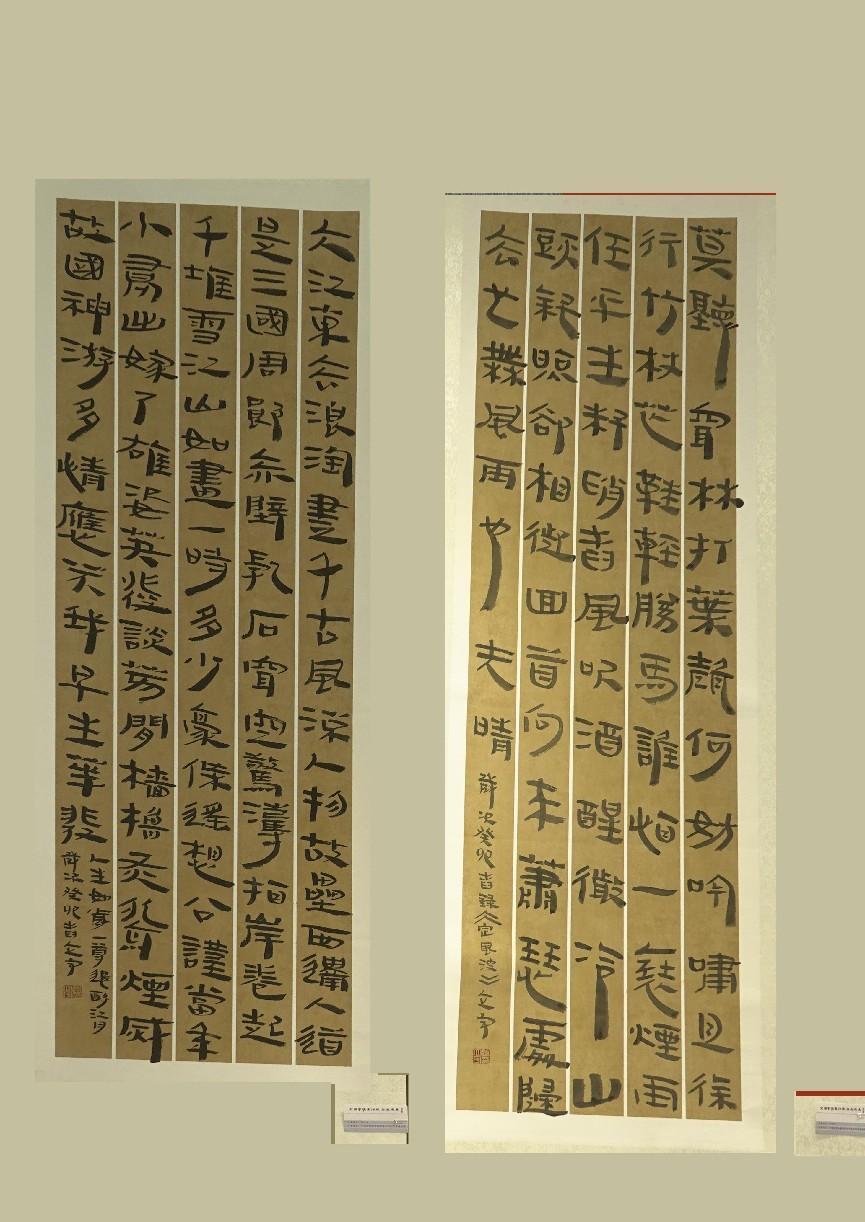 莫聽穿林打葉聲何妨吟嘯且徐
行竹杖芒鞋輕勝馬誰怕一蓑煙雨
任平生料峭春風吹酒醒微冷山
頭斜照卻相迎回首向來蕭瑟處歸
去也無風雨也无晴
歲次癸卯春錄《定風波》文宇
大江東去浪淘盡千古風流人物故壘西邊人道
是三國周郎赤壁亂石穿空驚濤拍岸卷起
千堆雪江山如畫一時多少豪傑遙想公瑾當年
小喬出嫁了雄姿英發談笑間檣櫓灰飛煙滅
故國神游多情應笑我早生華髮
人生如夢一尊還酹江月
歲次癸卯春文宇